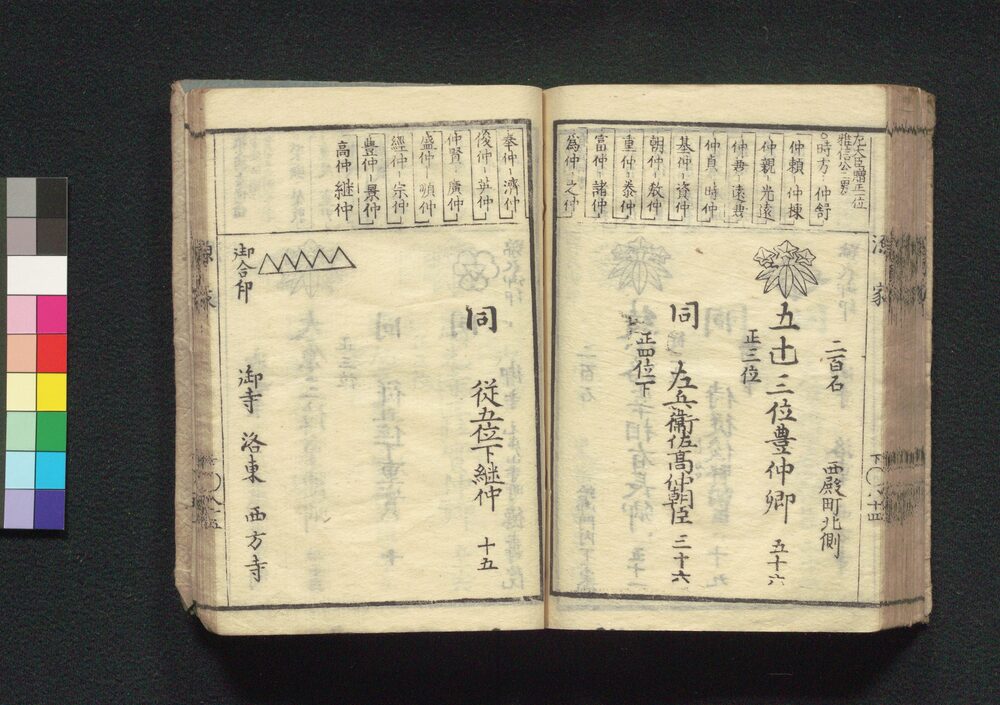 左大臣贈正一位
雅信公二男
○時方-仲舒
仲頼-仲棟
仲親-光遠
仲君-遠君
仲貞-時仲
基仲-資仲
朝仲-教仲
重仲-泰仲
富仲-諸仲
為仲-之仲
源家
下〇八十四
二百石
西殿町北側
五辻三位豊仲卿
五十六
正三位
同
左兵衛佐高仲朝臣
三十六
正四位下
奉仲-濟仲
俊仲-英仲
仲賢-廣仲
盛仲-順仲
經仲-宗仲
豊仲-景仲
高仲 継仲
同
従五位下継仲
十五
御合印
御寺
洛東
西方寺